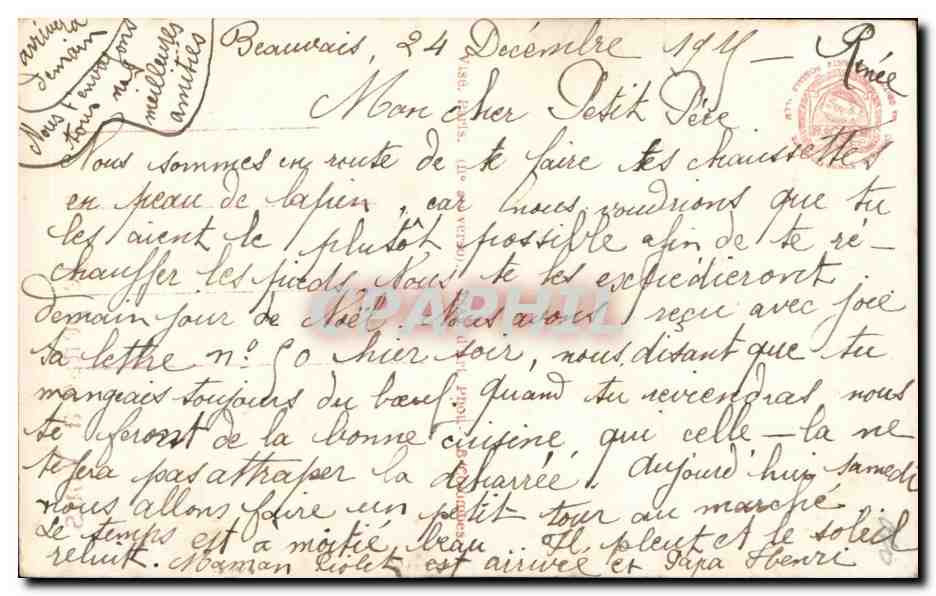 Beauvais, 24 Décembre 191 —
Renée
Mon cher Petit Père
Nous sommes en route de te faire tes chaussettes
en peau de lapin, car nous voudrions que tu
les aient le plutôt possible afin de te ré-
chauffer les pieds. Nous te les expédieront
demain jour de Noël. Nous avons reçu avec joie
ta lettre n° 50 hier soir, nous disant que tu
mangeais toujours du bœuf. Quand tu reviendras nous
te feront de la bonne cuisine qui celle-la ne
te fera pas attraper la diharrée. Aujourd'hui samedi
nous allons faire un petit tour au marché
Le temps est a moitié beau Il pleut et le soleil
reluit. Maman est arrivée et Papa Henri
arrivera
demain
Nous t'envoyons
tous nos
meilleuses
amitiés
CPAPHIL
Visé. Paris.